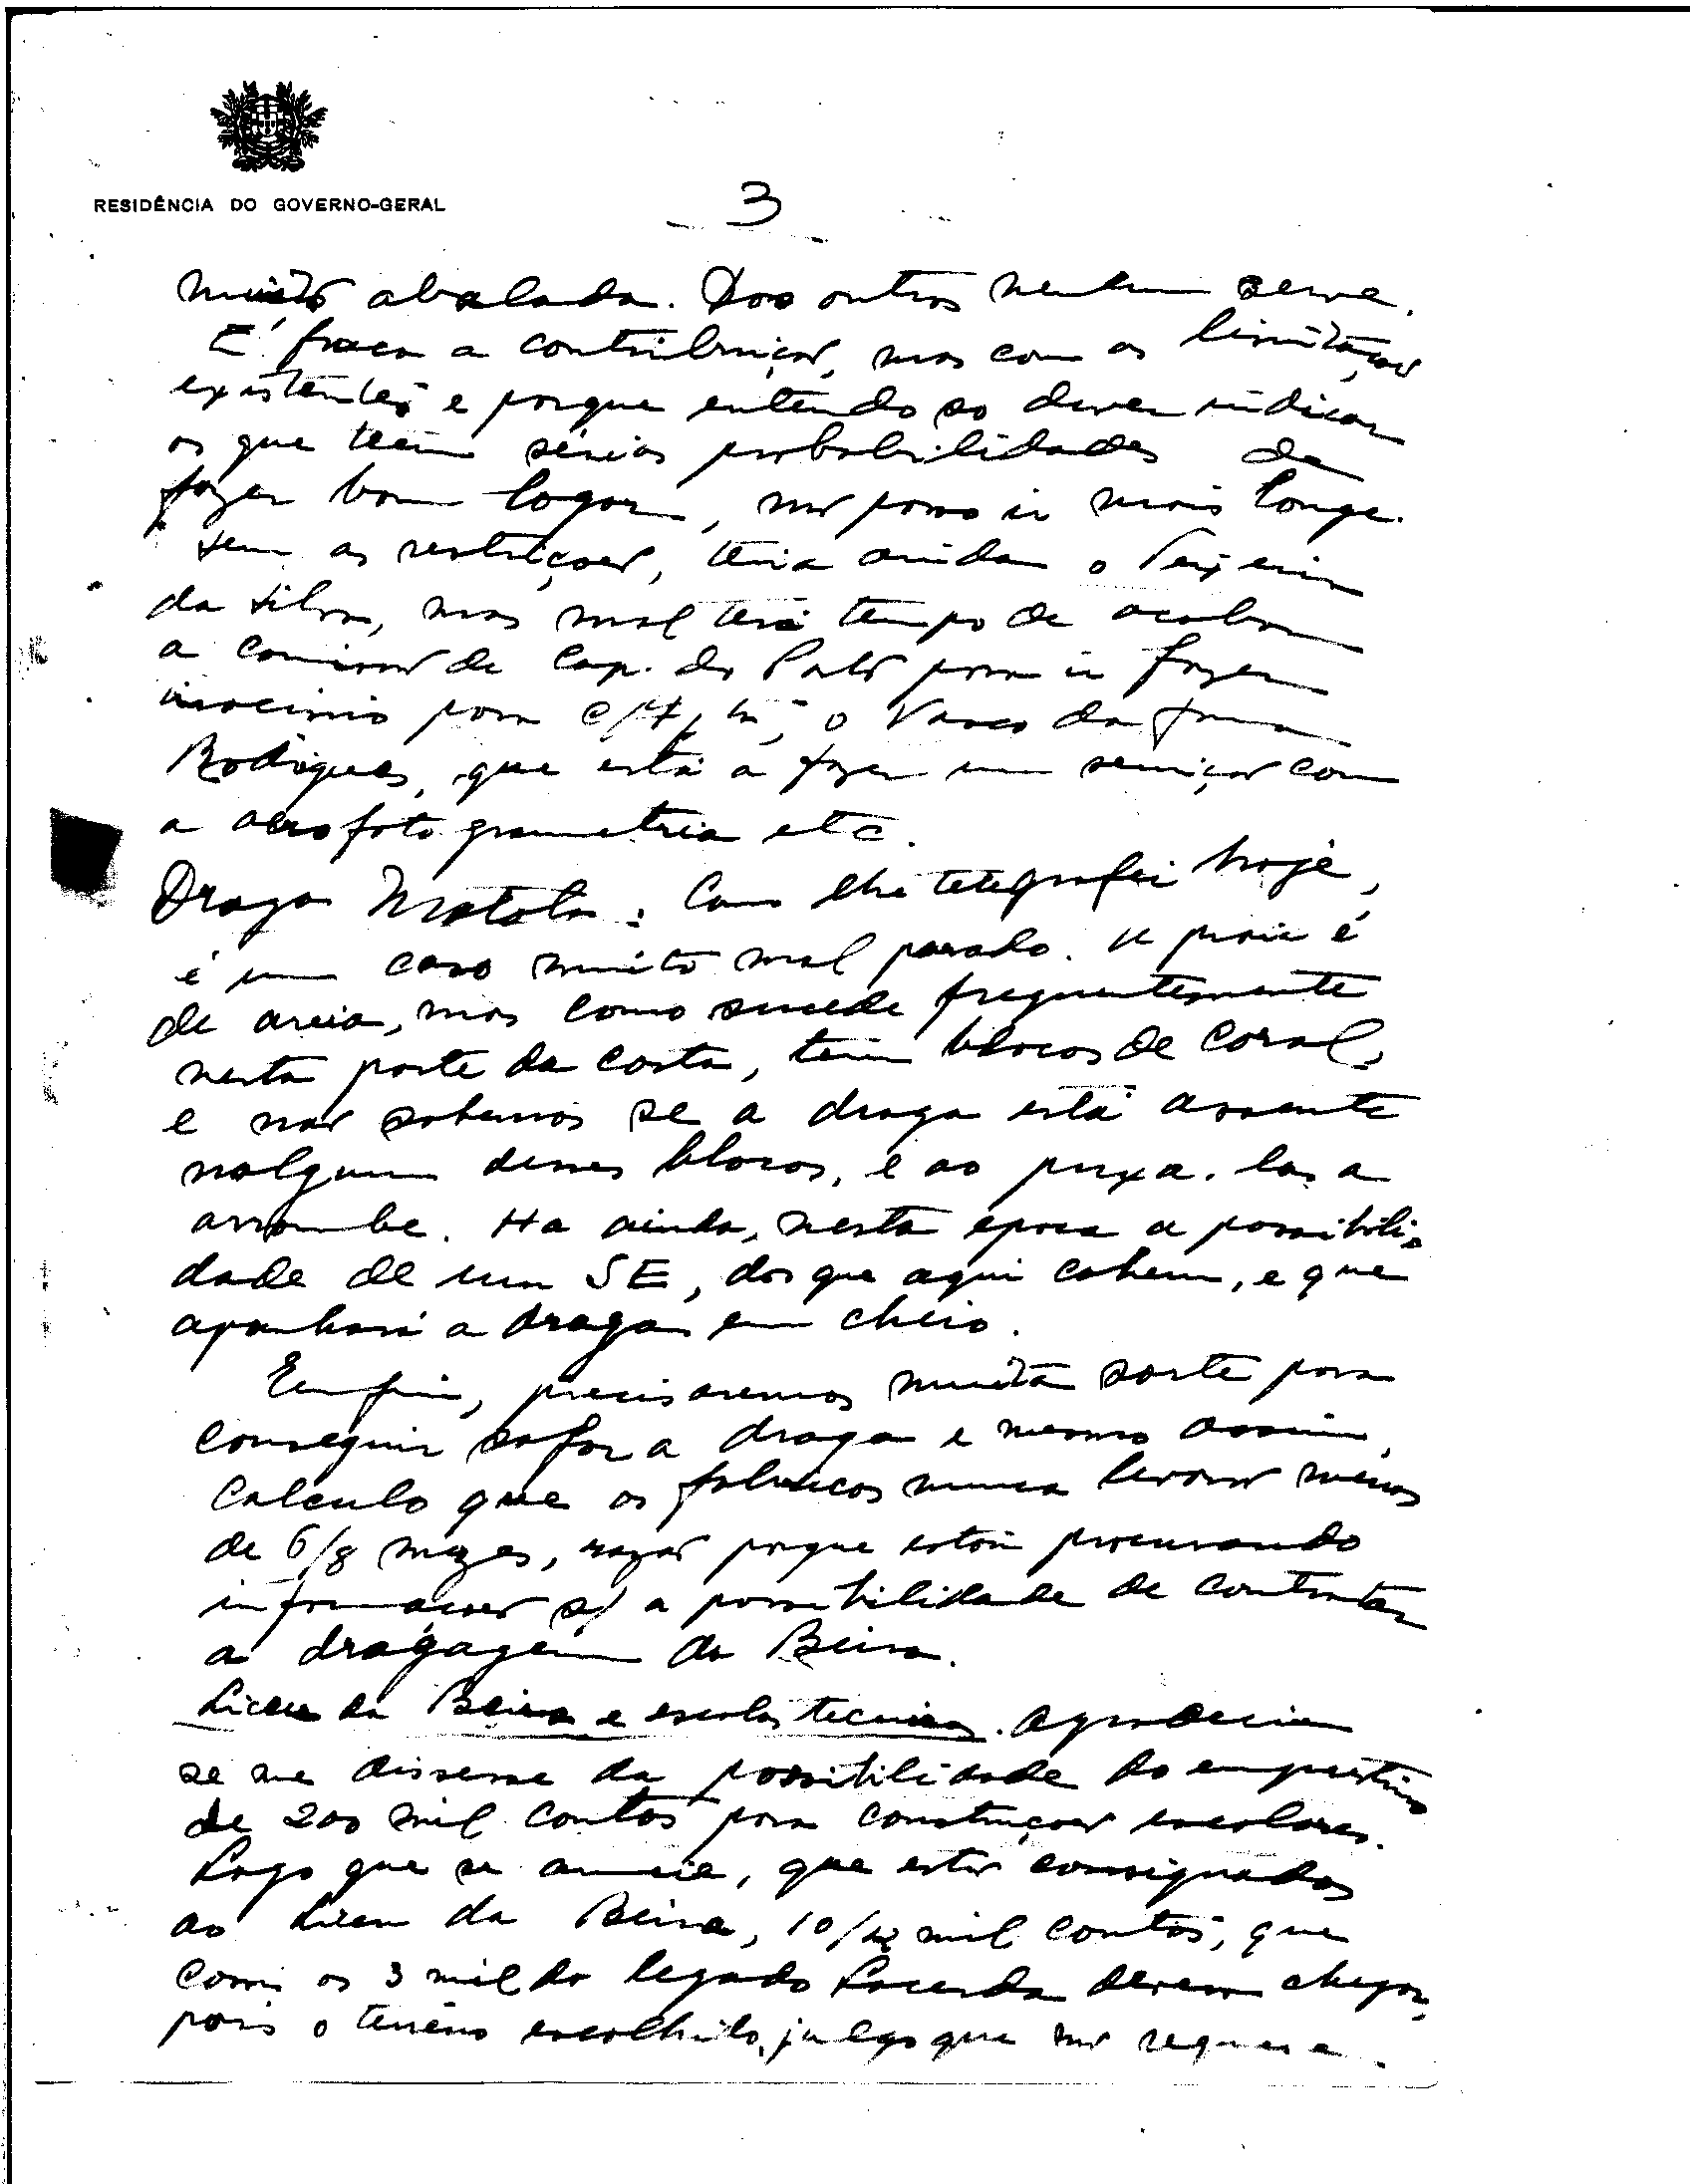 RESIDÊNCIA DO GOVERNO-GERAL
3
muito abalada. Dos outros nenhum serve.
É fraca a contribuição, mas com as limitações
existentes e porque entendo só dever indicar
os que teem sérias probabilidades de
fazer bom logar, não posso ir mais longe.
Sem as restrições, teria ainda o Teixeira
da Silva, mas mal terá tempo de acabar
a comissão de Cap. do Porto para ir fazer
para o Vasco da Gama
Rodrigues, que está a fazer um serviço com
a aerofotogrametria etc.
Draga Matola: Como lhe telegrafei hoje,
é um caso muito mal parado. A praia é
de areia, mas como sucede frequentemente
nesta parte da costa, tem blocos de coral,
e não sabemos se a draga está assente
nalgum desses blocos, e ao puxa-la a
arrombe. Ha ainda, nesta epoca a possibili-
dade de um SE, dos que aqui cahem, e que
apanhará a draga em cheio.
Emfim, precisaremos muita sorte para
conseguir safar a draga e mesmo assim,
calculo que os fabricos nunca levarão menos
de 6/8 mezes, razão porque estou procurando
informações s/ a possibilidade de contratar
a dragagem da Beira.
Liceu da Beira e escolas tecnicas. Agradecia
se me dissesse da possibilidade do emprestimo
de 200 mil contos para construções escolares.
Logo que se anuncie, que estão consignados
ao Liceu da Beira, 10/12 mil contos, que
com os 3 mil do legado Lacerda devem chegar,
pois o terreno escolhido, julgo que não requere